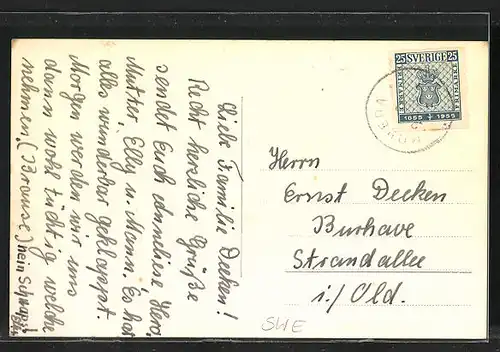 Liebe Familie Decken!
Recht herzliche Grüße
sendet Euch Annneliese Hero,
Mutter, Elly u. Mann. Es hat
alles wunderbar geklappt.
Morgen werden wir uns
dann wohl tüchtig welche
nehmen. (Brause,) nein Schnaps!
25 SVERIGE 25
FRIMÄRKET
1855 1955
Herrn
Ernst Decken
Burhave
Strandallee
i./Old.
SWE